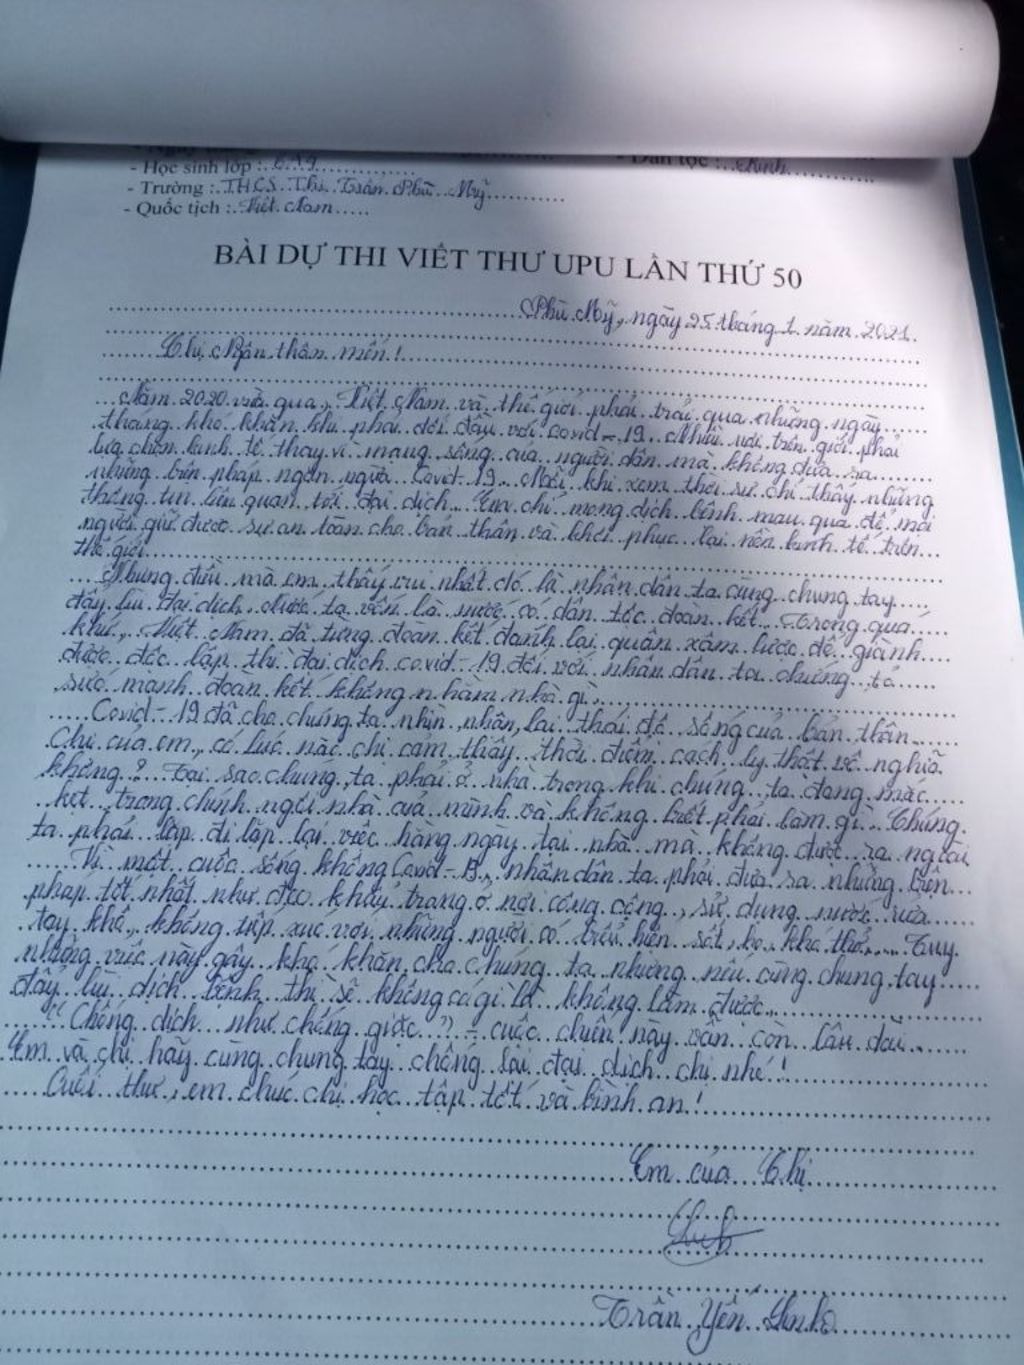 - Học sinh lớp :
- Dân tộc : Kinh
- Trường : THCS Thị Trấn Phù Mỹ
- Quốc tịch : Việt Nam
BÀI DỰ THI VIẾT THƯ UPU LẦN THỨ 50
Phù Mỹ, ngày 25 tháng 1 năm 2021.
Chị thân mến!
Năm 2020 vừa qua, Việt Nam và thế giới phải trải qua những ngày
tháng khó khăn khi phải đối đầu với covid-19. Nhiều nơi trên giới phải
lựa chọn kinh tế thay vì mạng sống của người dân mà không đưa ra
những biện pháp ngăn ngừa Covid-19. Mỗi khi xem thời sự chỉ thấy những
thông tin liên quan tới đại dịch. Em chỉ mong dịch bệnh mau qua để mọi
người giữ được sự an toàn cho bản thân và khôi phục lại nền kinh tế trên
thế giới
Nhưng điều mà em thấy vui nhất đó là nhân dân ta cùng chung tay
đẩy lùi đại dịch. Nước ta vốn là nước có dân tộc đoàn kết. Trong quá
khứ, Việt Nam đã từng đoàn kết đánh lại quân xâm lược để giành
được độc lập thì đại dịch covid-19 đối với nhân dân ta chứng tỏ
sức mạnh đoàn kết không nhằm nhò gì.
Covid-19 đã cho chúng ta nhìn nhận lại thái độ sống của bản thân.
Chị của em, có lúc nào chị cảm thấy thời điểm cách ly thật vô nghĩa
không? Tại sao chúng ta phải ở nhà trong khi chúng ta đang mắc
kẹt trong chính ngôi nhà của mình và không biết phải làm gì. Chúng
ta phải lặp đi lặp lại việc hàng ngày tại nhà mà không được ra ngoài
Vì một cuộc sống không Covid-19, nhân dân ta phải đưa ra những biện
pháp tốt nhất như đeo khẩu trang ở nơi công cộng, sử dụng nước rửa
tay khô, không tiếp xúc với những người có biểu hiện sốt, ho, khó thở,... Tuy
những việc này gây khó khăn cho chúng ta nhưng nếu cùng chung tay
đẩy lùi dịch bệnh thì sẽ không có gì là không làm được.
"Chống dịch như chống giặc" - cuộc chiến này vẫn còn lâu dài.
Em và chị hãy cùng chung tay chống lại đại dịch chị nhé!
Cuối thư, em chúc chị học tập tốt và bình an!
Em của Chị
Trần Yến Linh